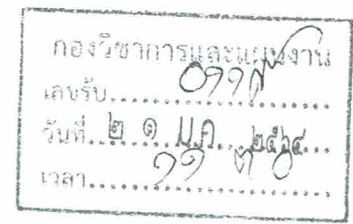 กองวิชาการและแผนงาน
เลขรับ
วันที่ ๒๑ ม.ค. ๒๕๖๔
เวลา